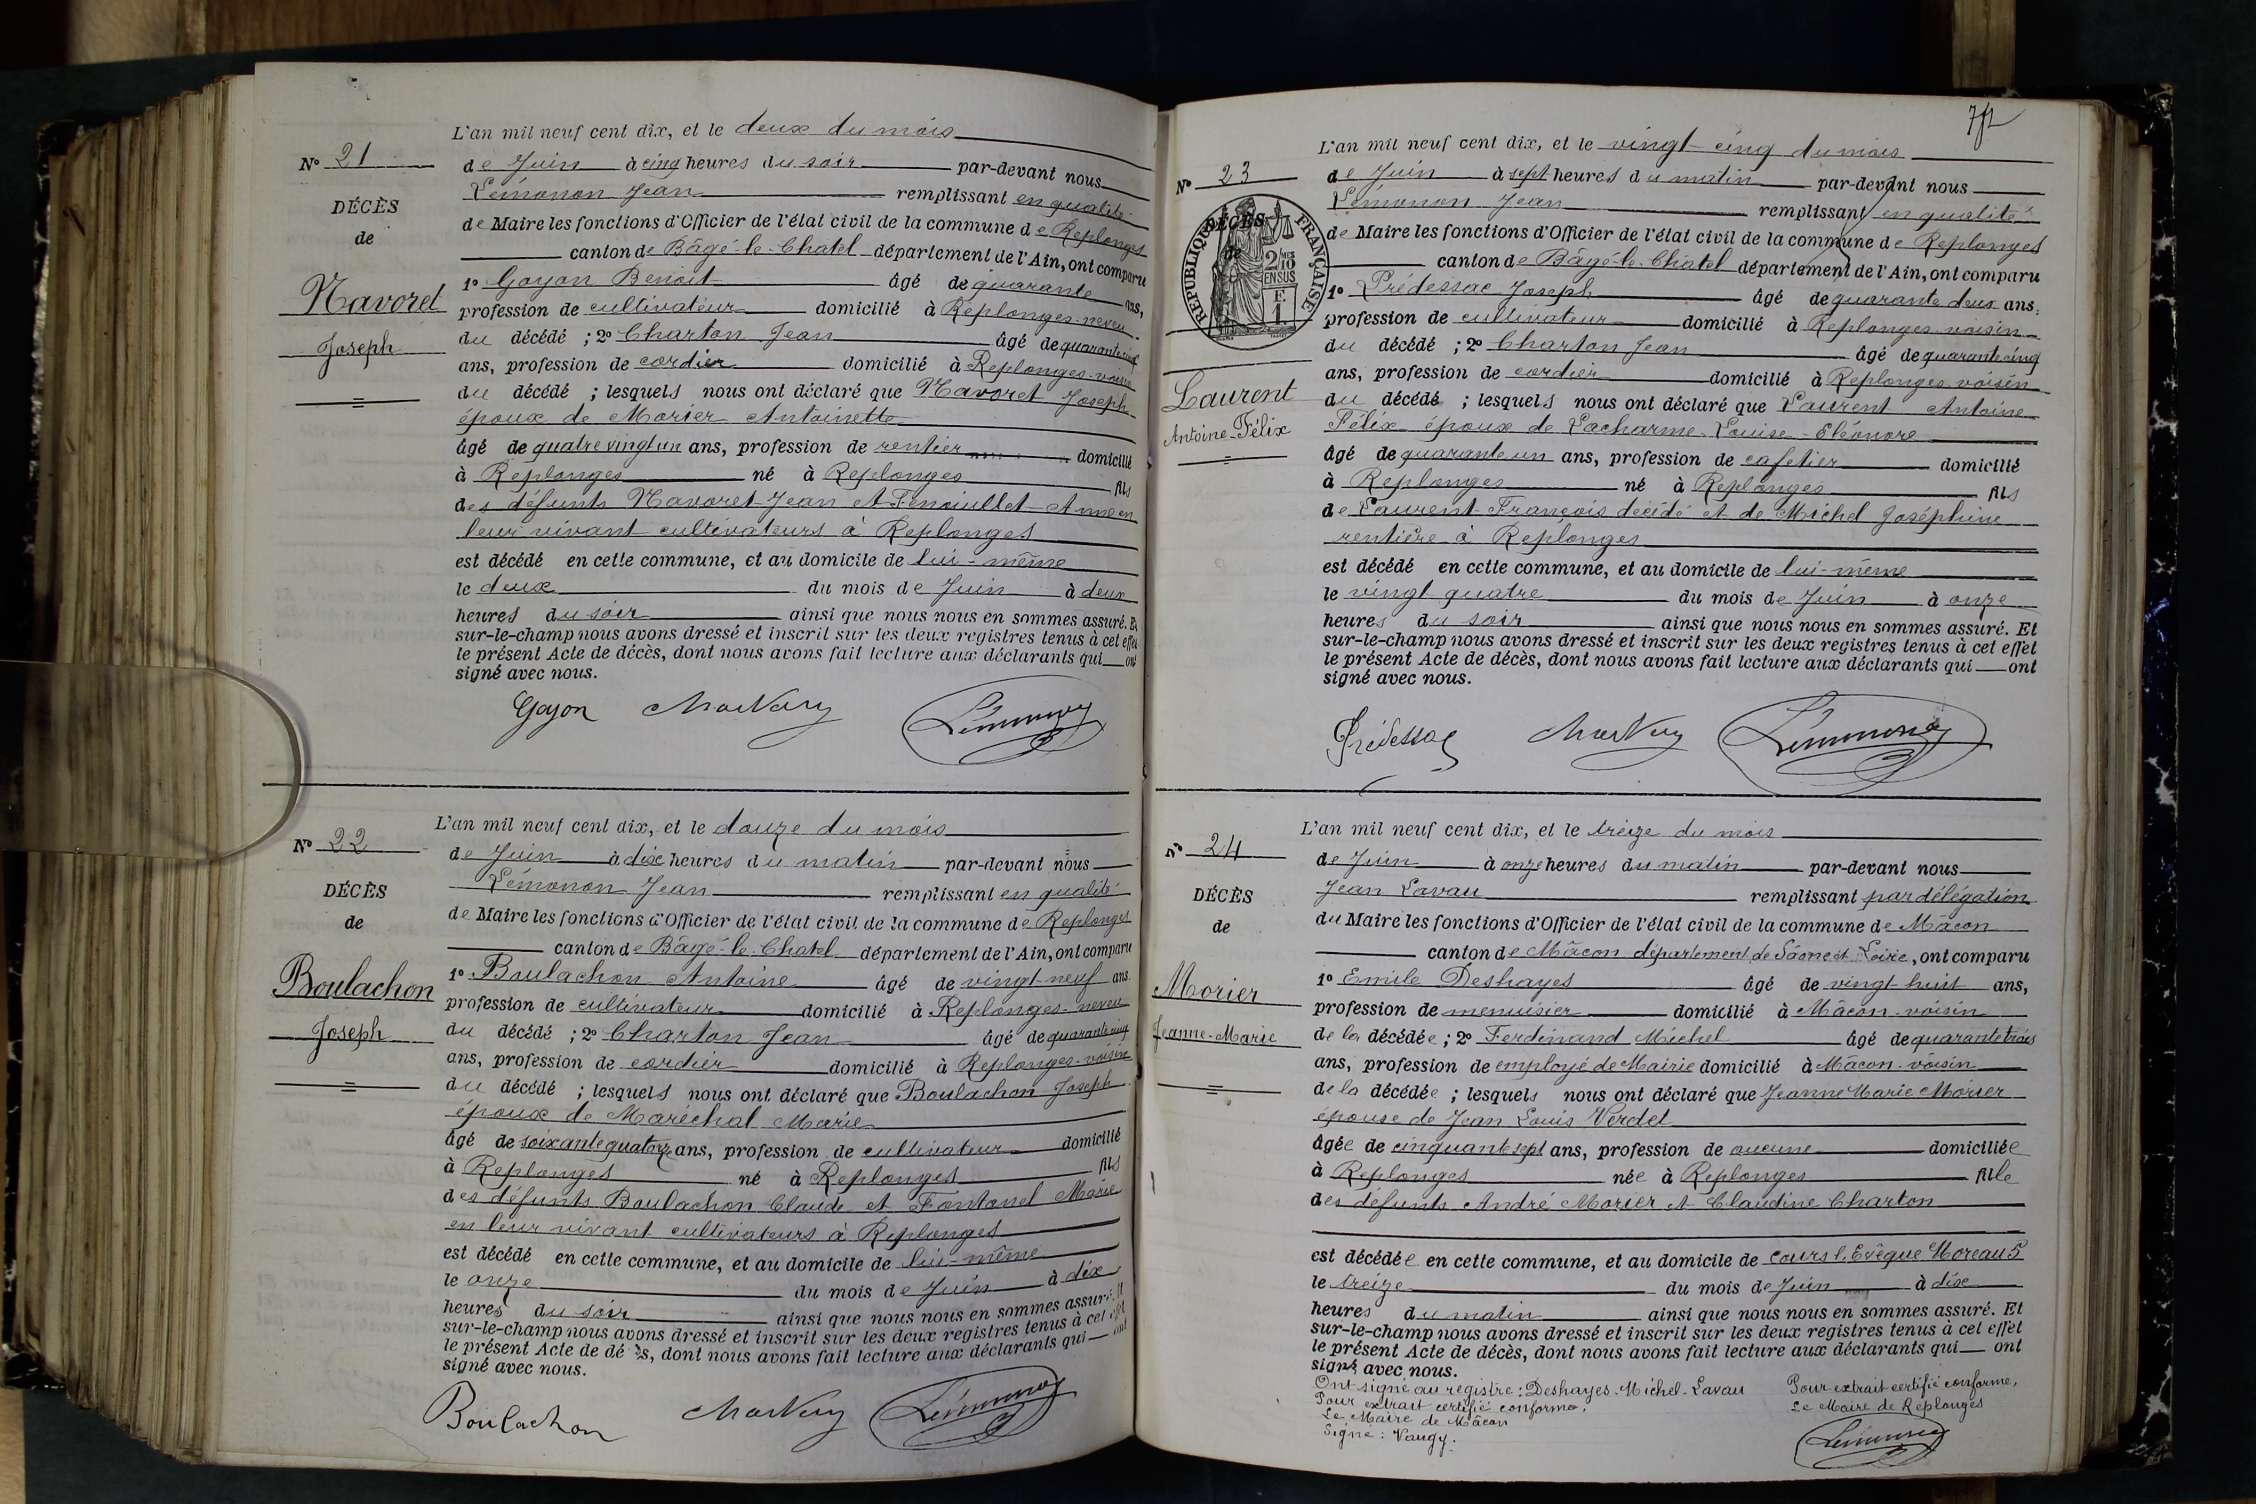 N° 21
DÉCÈS
de
Navoret
Joseph
L'an mil neuf cent dix, et le deux du mois
de Juin à cinq heures du soir par-devant nous
Lémonon Jean remplissant en qualité
de Maire les fonctions d'Officier de l'état civil de la commune de Replonges
canton de Bâgé-le-Chatel département de l'Ain, ont comparu
1° Goyon Benoit âgé de quarante ans,
profession de cultivateur domicilié à Replonges neveu
du décédé ; 2° Charton Jean âgé de quarante cinq
ans, profession de cordier domicilié à Replonges-voisin
du décédé ; lesquels nous ont déclaré que Navoret Joseph
époux de Morier Antoinette
âgé de quatre vingt un ans, profession de rentier domicilié
à Replonges né à Replonges fils
des défunts Navoret Jean et Fenouillet Anne en
leur vivant cultivateurs à Replonges
est décédé en cette commune, et au domicile de lui-même
le deux du mois de Juin à deux
heures du soir ainsi que nous nous en sommes assuré. Et
sur-le-champ nous avons dressé et inscrit sur les deux registres tenus à cet effet
le présent Acte de décès, dont nous avons fait lecture aux déclarants qui ont
signé avec nous.
Goyon Lémonon
N° 22
DÉCÈS
de
Boulachon
Joseph
L'an mil neuf cent dix, et le douze du mois
de Juin à dix heures du matin par-devant nous
Lémonon Jean remplissant en qualité
de Maire les fonctions d'Officier de l'état civil de la commune de Replonges
canton de Bâgé-le-Chatel département de l'Ain, ont comparu
1° Boulachon Antoine âgé de vingt-neuf ans
profession de cultivateur domicilié à Replonges-neveu
du décédé ; 2° Charton Jean âgé de quarante cinq
ans, profession de cordier domicilié à Replonges-voisin
du décédé ; lesquels nous ont déclaré que Boulachon Joseph
époux de Maréchal Marie
âgé de soixante quatorze ans, profession de cultivateur domicilié
à Replonges né à Replonges fils
des défunts Boulachon Claude et Fontanel Marie
en leur vivant cultivateurs à Replonges
est décédé en cette commune, et au domicile de lui-même
le onze du mois de Juin à dix
heures du soir ainsi que nous nous en sommes assuré. Et
sur-le-champ nous avons dressé et inscrit sur les deux registres tenus à cet effet
le présent Acte de décès, dont nous avons fait lecture aux déclarants qui ont
signé avec nous.
Boulachon Lémonon
N° 23
DÉCÈS
de
RÉPUBLIQUE FRANÇAISE
2/10
EN SUS
Laurent
Antoine-Félix
L'an mil neuf cent dix, et le vingt-cinq du mois
de Juin à sept heures du matin par-devant nous
Lémonon Jean remplissant en qualité
de Maire les fonctions d'Officier de l'état civil de la commune de Replonges
canton de Bâgé-le-Chatel département de l'Ain, ont comparu
1° Prédessac Joseph âgé de quarante deux ans,
profession de cultivateur domicilié à Replonges voisin
du décédé ; 2° Charton Jean âgé de quarante cinq
ans, profession de cordier domicilié à Replonges voisin
du décédé ; lesquels nous ont déclaré que Laurent Antoine
Félix époux de Lacharme Louise-Eléonore
âgé de quarante un ans, profession de cafetier domicilié
à Replonges né à Replonges fils
de Laurent François décédé et de Michel Joséphine
rentière à Replonges
est décédé en cette commune, et au domicile de lui-même
le vingt quatre du mois de Juin à onze
heures du soir ainsi que nous nous en sommes assuré. Et
sur-le-champ nous avons dressé et inscrit sur les deux registres tenus à cet effet
le présent Acte de décès, dont nous avons fait lecture aux déclarants qui ont
signé avec nous.
Prédessac Lémonon
N° 24
DÉCÈS
de
Morier
Jeanne-Marie
L'an mil neuf cent dix, et le treize du mois
de Juin à onze heures du matin par-devant nous
Jean Lavau remplissant par délégation
du Maire les fonctions d'Officier de l'état civil de la commune de Mâcon
canton de Mâcon département de Saône et Loire, ont comparu
1° Emile Deshayes âgé de vingt huit ans,
profession de menuisier domicilié à Mâcon-voisin
de la décédée ; 2° Ferdinand Michel âgé de quarante trois
ans, profession de employé de Mairie domicilié à Mâcon-voisin
de la décédée ; lesquels nous ont déclaré que Jeanne Marie Morier
épouse de Jean Louis Verdet
âgée de cinquante sept ans, profession de aucune domiciliée
à Replonges née à Replonges fille
des défunts André Morier et Claudine Charton
est décédée en cette commune, et au domicile de cours l'Evêque Moreau 5
le treize du mois de Juin à dix
heures du matin ainsi que nous nous en sommes assuré. Et
sur-le-champ nous avons dressé et inscrit sur les deux registres tenus à cet effet
le présent Acte de décès, dont nous avons fait lecture aux déclarants qui ont
signé avec nous.
Ont signé au registre : Deshayes-Michel-Lavau
Pour extrait certifié conforme.
Le Maire de Mâcon
Signé : Vaugy.
Pour extrait certifié conforme,
Le Maire de Replonges
Lémonon